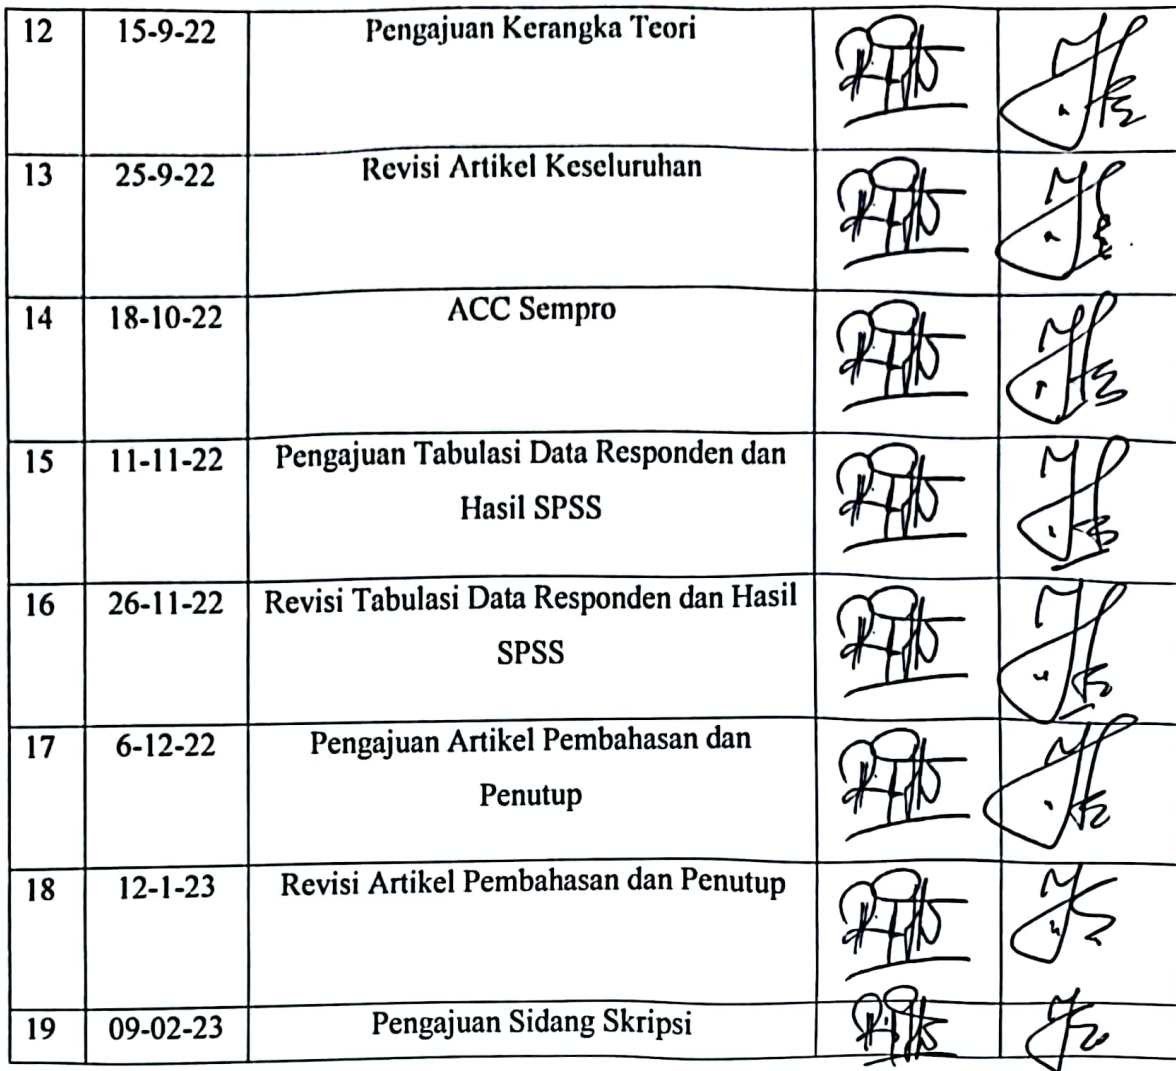 12 15-9-22 Pengajuan Kerangka Teori
13 25-9-22 Revisi Artikel Keseluruhan
14 18-10-22 ACC Sempro
15 11-11-22 Pengajuan Tabulasi Data Responden dan
Hasil SPSS
16 26-11-22 Revisi Tabulasi Data Responden dan Hasil
SPSS
17 6-12-22 Pengajuan Artikel Pembahasan dan
Penutup
18 12-1-23 Revisi Artikel Pembahasan dan Penutup
19 09-02-23 Pengajuan Sidang Skripsi